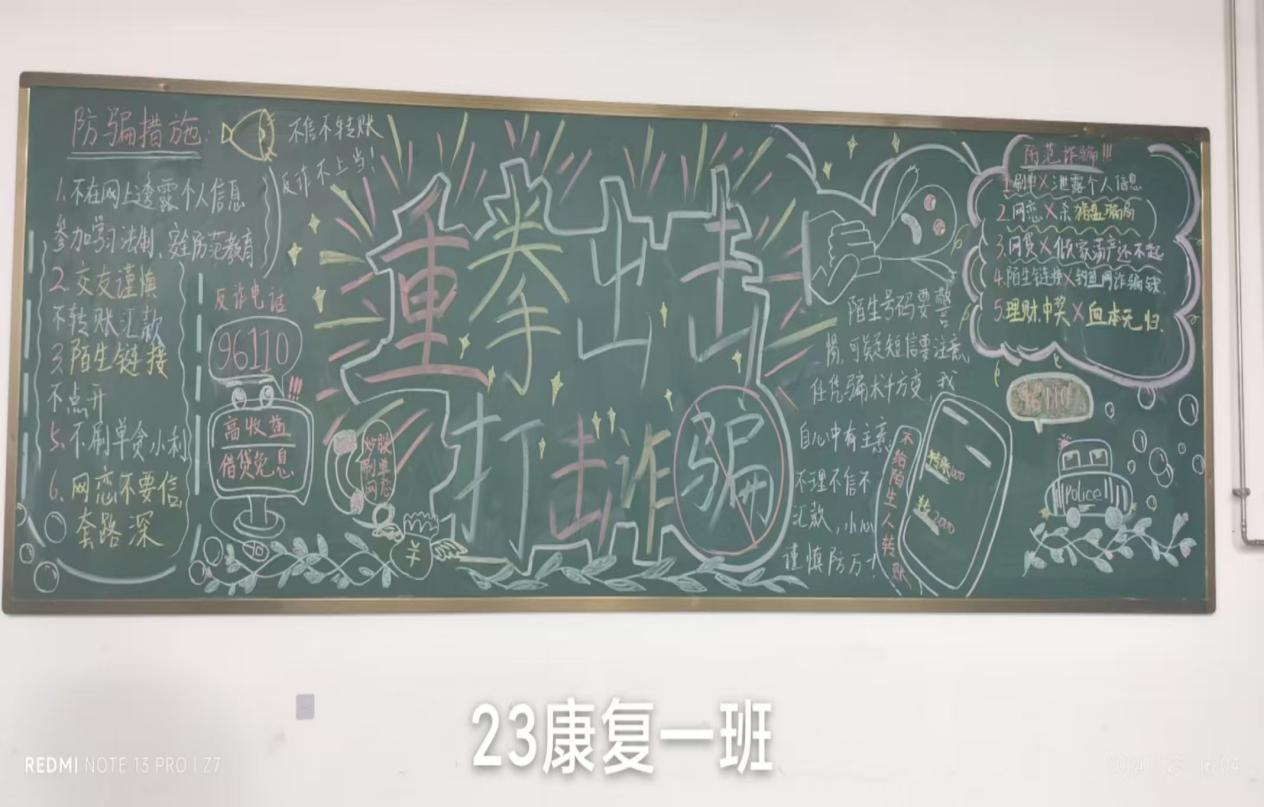 防骗措施:
不信不转账
反诈不上当!
1.不在网上透露个人信息
参加学习法制、安全防范教育
2.交友谨慎
不转账汇款
3.陌生链接
不点开
5.不刷单贪小利
6.网恋不要信
套路深
反诈电话
96110
!!!
高收益
借贷免息
炒股
刷单
网恋
¥
重拳出击
打击诈骗
陌生号码要警
惕,可疑短信要注意,
任凭骗术千方变,我
自心中有主意
不理不信不
汇款,小心
谨慎防万才
不给陌生人转账
转账
转2000
防范诈骗!!!
1.刷单X泄露个人信息
2.网恋X杀猪盘骗局
3.网贷X倾家荡产还不起
4.陌生链接X钓鱼网诈骗钱
5.理财中奖X血本无归.
Police
23康复一班
REDMI NOTE 13 PRO | Z7